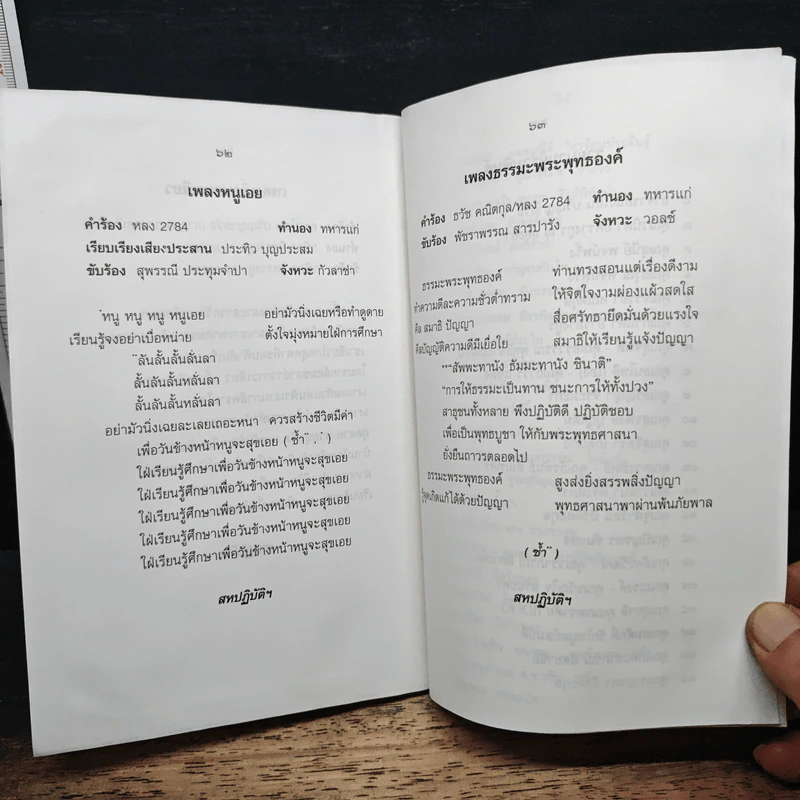 ๖๒
เพลงหนูเอย
คำร้อง หลง 2784 ทำนอง ทหารแก่
เรียบเรียงเสียงประสาน ประทิว บุญประสม
ขับร้อง สุพรรณี ประทุมจำปา จังหวะ กัวลาช่า
"หนู หนู หนู หนูเอย อย่ามัวนิ่งเฉยหรือทำดูดาย
เรียนรู้จงอย่าเบื่อหน่าย ตั้งใจมุ่งหมายใฝ่การศึกษา
"ลันลั้นลั้นลั่นลา
ลั้นลันลั้นหลั่นลา
ลั้นลันลั้นหลั่นลา
อย่ามัวนิ่งเฉยละเลยเถอะหนา ควรสร้างชีวิตมีค่า
เพื่อวันข้างหน้าหนูจะสุขเอย ( ซ้ำ" , ' )
ใฝ่เรียนรู้ศึกษาเพื่อวันข้างหน้าหนูจะสุขเอย
ใฝ่เรียนรู้ศึกษาเพื่อวันข้างหน้าหนูจะสุขเอย
ใฝ่เรียนรู้ศึกษาเพื่อวันข้างหน้าหนูจะสุขเอย
ใฝ่เรียนรู้ศึกษาเพื่อวันข้างหน้าหนูจะสุขเอย
ใฝ่เรียนรู้ศึกษาเพื่อวันข้างหน้าหนูจะสุขเอย
สหปฏิบัติฯ
๖๓
เพลงธรรมะพระพุทธองค์
คำร้อง ธวัช คณิตกุล/หลง 2784 ทำนอง ทหารแก่
ขับร้อง พัชราพรรณ สารปารัง จังหวะ วอลช์
ธรรมะพระพุทธองค์ ท่านทรงสอนแต่เรื่องดีงาม
ทำความดีละความชั่วต่ำทราม ให้จิตใจงามผ่องแผ้วสดใส
ศีล สมาธิ ปัญญา สื่อศรัทธายึดมันด้วยแรงใจ
ศีลบัญญัติความดีมีเยื่อใย สมาธิให้เรียนรู้แจ้งปัญญา
""สัพพะทานัง ธัมมะทานัง ชินาติ"
"การให้ธรรมะเป็นทาน ชนะการให้ทั้งปวง"
สาธุชนทั้งหลาย พึงปฏิบัติดี ปฏิบัติชอบ
เพื่อเป็นพุทธบูชา ให้กับพระพุทธศาสนา
ยั่งยืนถาวรตลอดไป
ธรรมะพระพุทธองค์ สูงส่งยิ่งสรรพสิ่งปัญญา
เกิดแก้ได้ด้วยปัญญา พุทธศาสนาพาผ่านพ้นภัยพาล
( ซ้ำ" )
สหปฏิบัติฯ